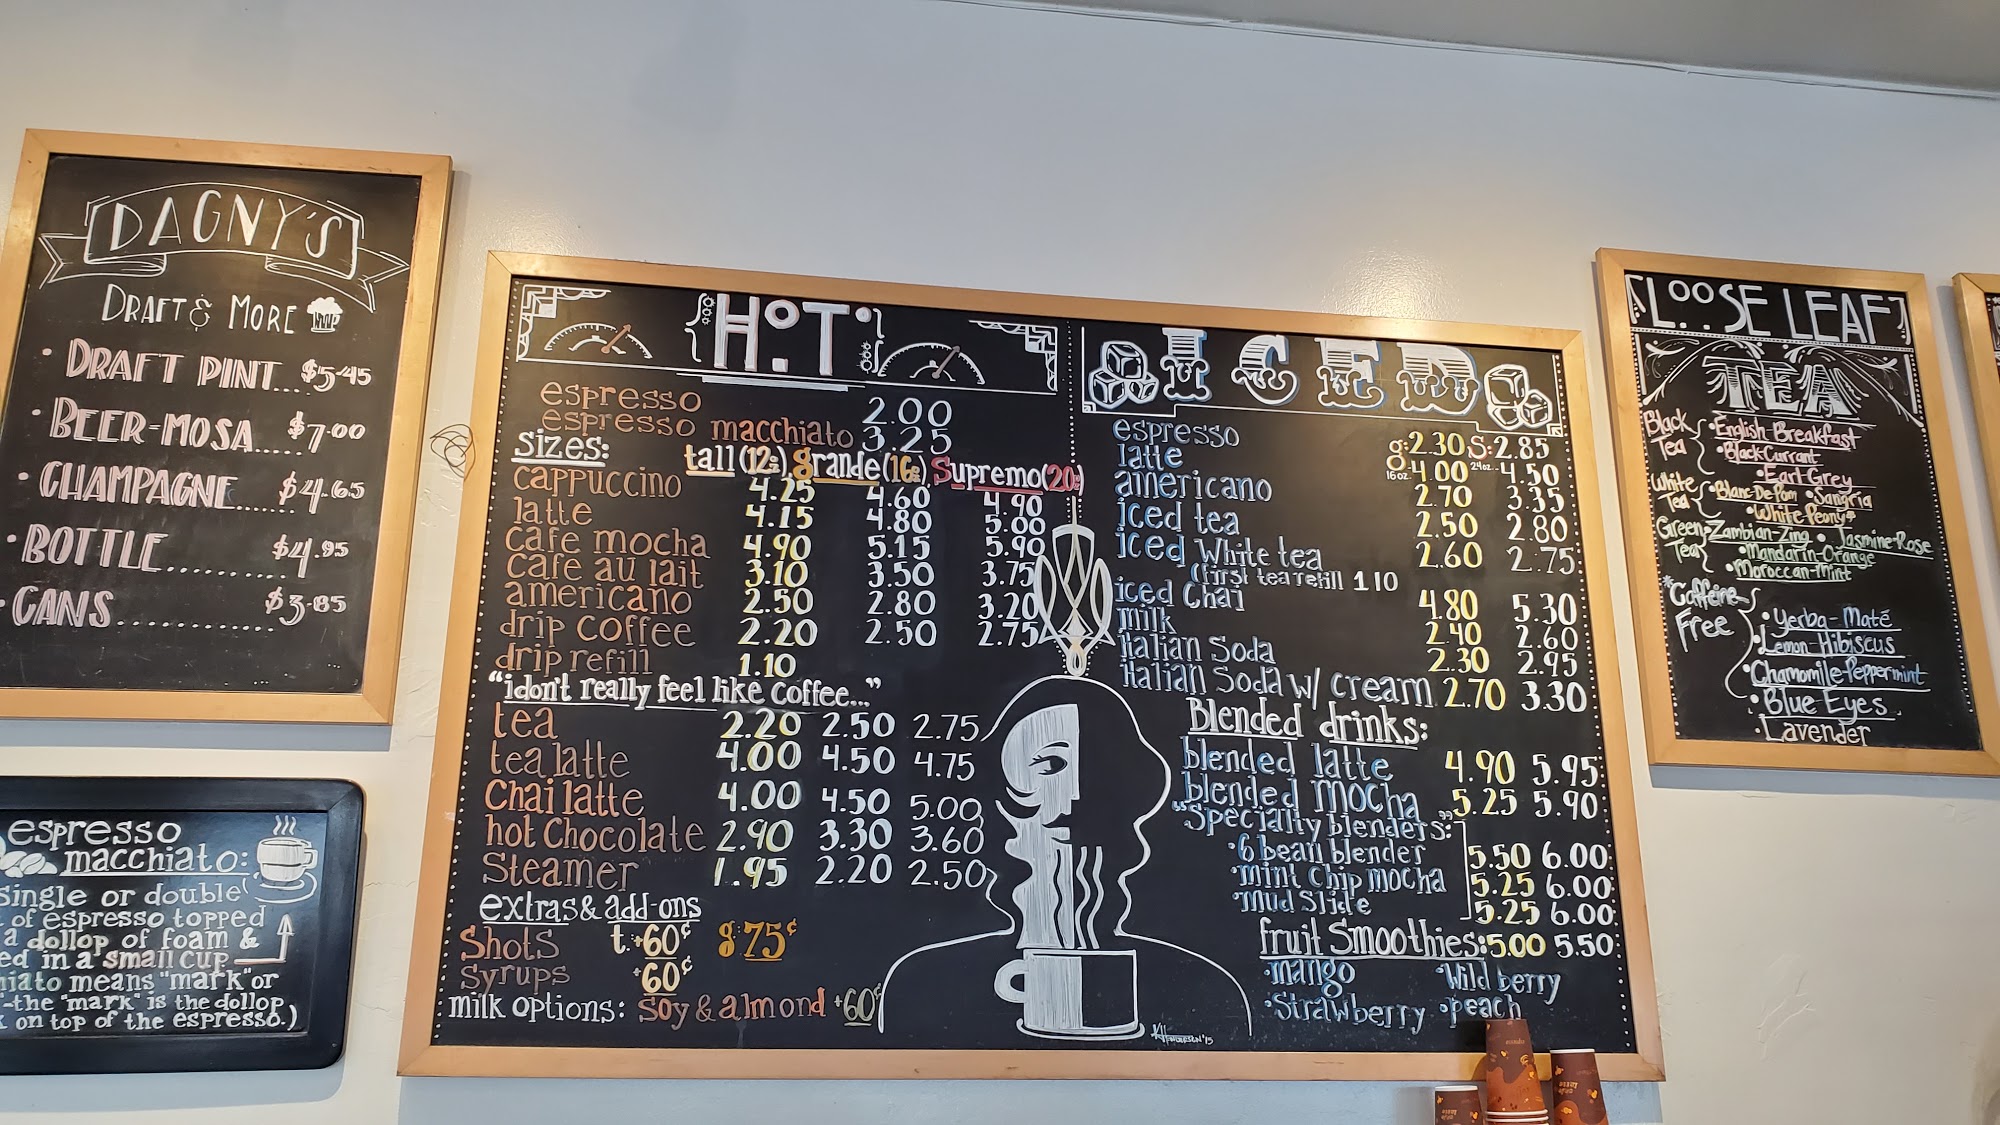 DAGNY'S
DRAFT & MORE
• DRAFT PINT... $5.45
• BEER-MOSA.... $7.00
• CHAMPAGNE....... $4.65
• BOTTLE........... $4.95
• CANS............. $3.85
espresso
macchiato:
single or double
of espresso topped
a dollop of foam &
ed in a small cup
hiato means "mark" or
-the "mark" is the dollop
on top of the espresso.)
HOT
espresso 2.00
espresso macchiato 3.25
sizes: tall (12oz), grande (16oz), Supremo (20oz)
cappuccino 4.25 4.60 4.90
latte 4.15 4.80 5.00
cafe mocha 4.90 5.15 5.90
cafe au lait 3.10 3.50 3.75
americano 2.50 2.80 3.20
drip coffee 2.20 2.50 2.75
drip refill 1.10
"i don't really feel like coffee..."
tea 2.20 2.50 2.75
tea latte 4.00 4.50 4.75
Chai latte 4.00 4.50 5.00
hot Chocolate 2.90 3.30 3.60
Steamer 1.95 2.20 2.50
extras & add-ons
Shots t:+60¢ g:75¢
syrups +60¢
milk options: soy & almond +60¢
ICED
espresso g:2.30 S:2.85
latte 16oz. 4.00 24oz. 4.50
americano 2.70 3.35
iced tea 2.50 2.80
iced White tea 2.60 2.75
(first tea refill 1.10
iced Chai 4.80 5.30
milk 2.40 2.60
italian Soda 2.30 2.95
italian Soda w/ cream 2.70 3.30
Blended drinks:
blended latte 4.90 5.95
blended mocha 5.25 5.90
"Specialty blenders":
• 6 bean blender 5.50 6.00
• mint chip mocha 5.25 6.00
• Mud Slide 5.25 6.00
fruit Smoothies: 5.00 5.50
• mango • Wild berry
• Strawberry • peach
'15
LOOSE LEAF
TEA
Black Tea
• English Breakfast
• Black Currant
• Earl Grey
White Tea
• Blanc-De-Pom • Sangria
• White Peony
Green Tea
• Zambian-Zing • Jasmine-Rose
• Mandarin-Orange
• Moroccan-Mint
*Caffeine Free
• Yerba-Maté
• Lemon Hibiscus
• Chamomile-Peppermint
• Blue Eyes
• Lavender